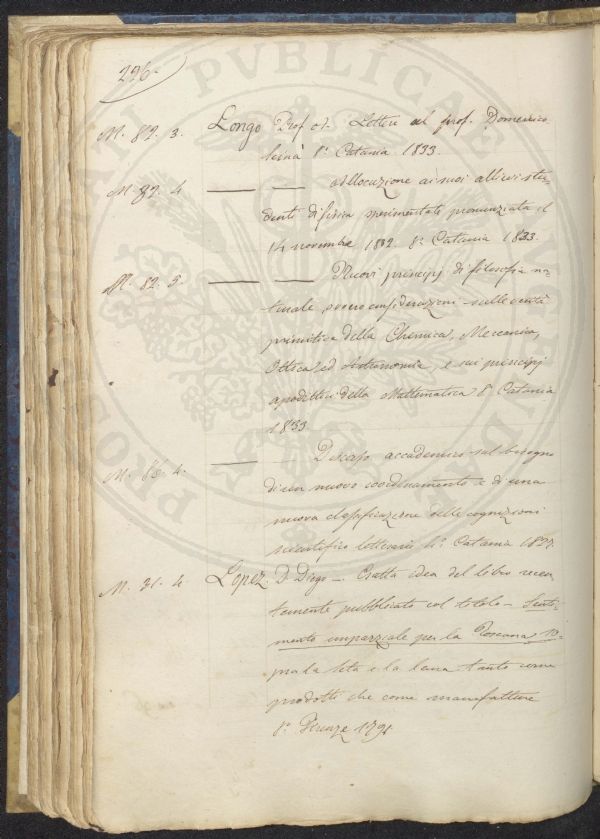 296
M. 82. 3. Longo Prof. ot. Lettere al prof. Domenico
Scinà 8° Catania 1833.
M. 82. 4. —— —— Allocuzione ai suoi allievi stu-
denti di fisica sperimentale pronunziata il
14 novembre 1832. 8° Catania 1833.
M. 82. 5. —— —— Nuovi principj di filosofia na-
turale ovvero considerazioni sulle verità
primitive della Chemica, Meccanica,
Ottica ed Astronomia, e sui principj
apodittici della Mattematica 8° Catania
1833
M. 86. 4. —— Discorso accademico sul bisogno
di un nuovo coordinamento e di una
nuova classificazione delle cognizioni
scientifico letterarie 4° Catania 1827.
M. 31. 4. Lopez. D. Diego — Esatta idea del libro recen-
temente pubblicato col titolo — Senti-
mento imparziale per la Toscana, so-
pra la seta e la lana tanto come
prodotti che come manufatture
8° Firenze 1791
PROVIDENTIA PVBLICAE